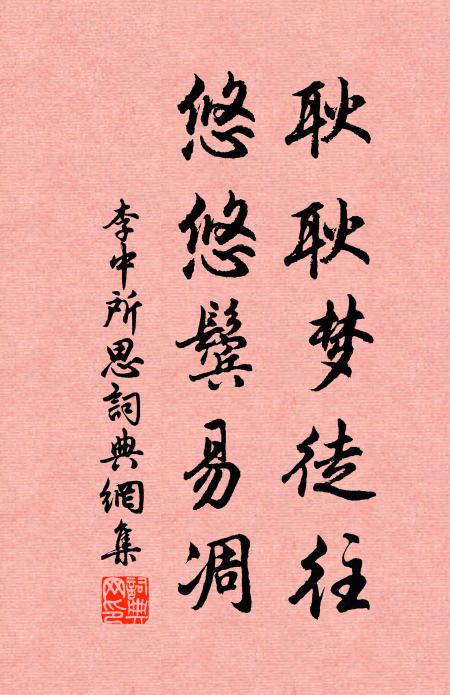 耿耿梦徒往
悠悠鬓易凋
李中所思詞典網集
詞典网印